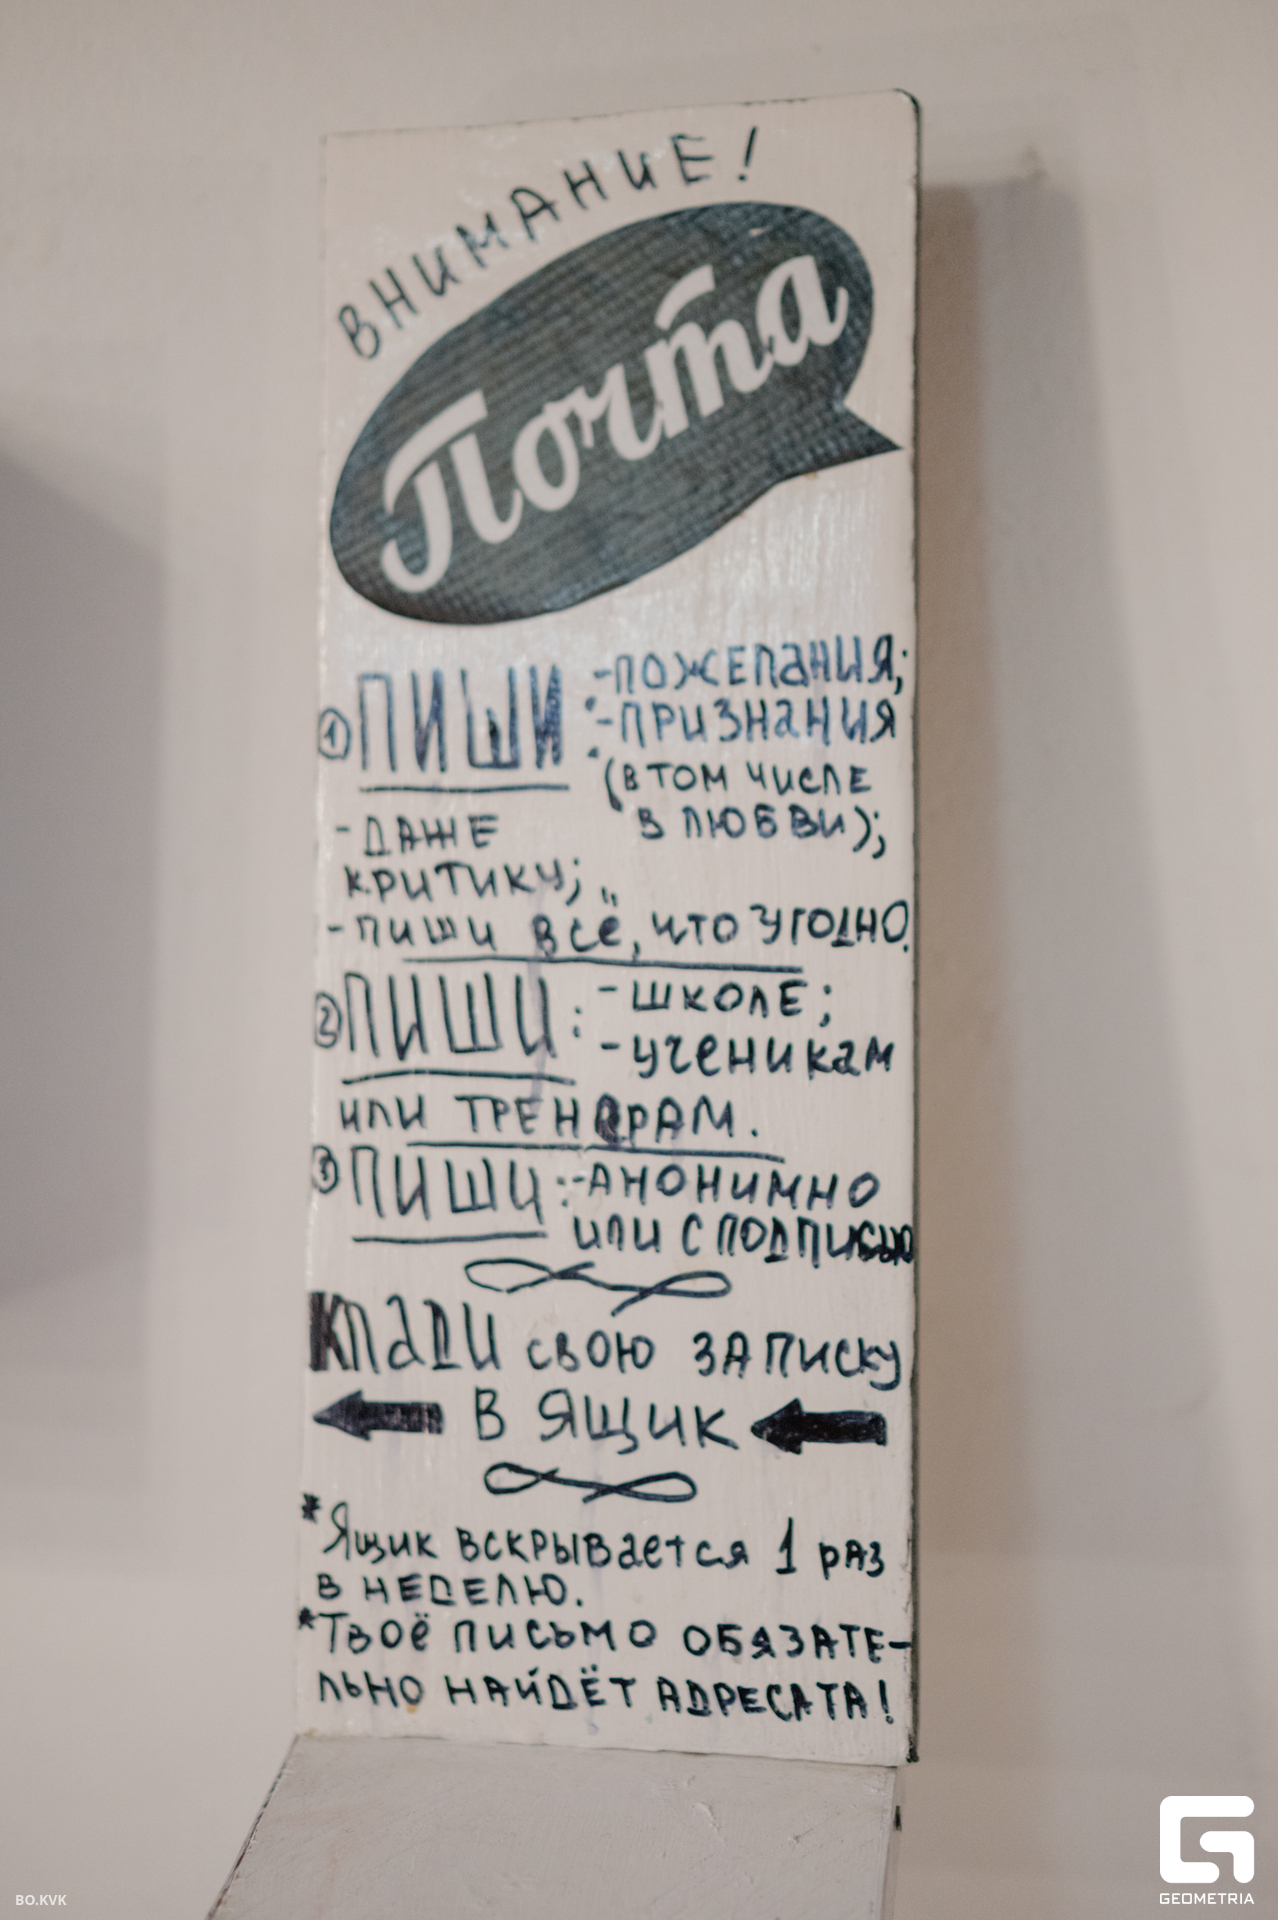 ВНИМАНИЕ!
Почта
① ПИШИ: -ПОЖЕЛАНИЯ;
-ПРИЗНАНИЯ
(В ТОМ ЧИСЛЕ
В ЛЮБВИ);
- ДАЖЕ
КРИТИКУ;
- ПИШИ ВСЁ, ЧТО УГОДНО.
② ПИШИ: - ШКОЛЕ;
- УЧЕНИКАМ
ИЛИ ТРЕНЕРАМ.
③ ПИШИ: -АНОНИМНО
ИЛИ С ПОДПИСЬЮ
КЛАДИ СВОЮ ЗАПИСКУ
В ЯЩИК
*Ящик вскрывается 1 раз
в неделю.
*Твоё письмо обязате-
льно найдёт адресата!
BO.KVK
GEOMETRIA